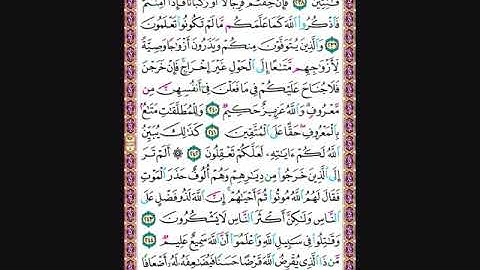 قَٰنِتِينَ ٢٣٨ فَإِنْ خِفْتُمْ فَرِجَالًا أَوْ رُكْبَانًا فَإِذَا أَمِنتُمْ
فَاذْكُرُوا اللَّهَ كَمَا عَلَّمَكُم مَّا لَمْ تَكُونُوا تَعْلَمُونَ
٢٣٩ وَالَّذِينَ يُتَوَفَّوْنَ مِنكُمْ وَيَذَرُونَ أَزْوَاجًا وَصِيَّةً
لِّأَزْوَاجِهِم مَّتَاعًا إِلَى الْحَوْلِ غَيْرَ إِخْرَاجٍ فَإِنْ خَرَجْنَ
فَلَا جُنَاحَ عَلَيْكُمْ فِي مَا فَعَلْنَ فِي أَنفُسِهِنَّ مِن
مَّعْرُوفٍ وَاللَّهُ عَزِيزٌ حَكِيمٌ ٢٤٠ وَلِلْمُطَلَّقَاتِ مَتَاعٌ
بِالْمَعْرُوفِ حَقًّا عَلَى الْمُتَّقِينَ ٢٤١ كَذَٰلِكَ يُبَيِّنُ
اللَّهُ لَكُمْ ءَايَاتِهِ لَعَلَّكُمْ تَعْقِلُونَ ٢٤٢ ۞ أَلَمْ تَرَ
إِلَى الَّذِينَ خَرَجُوا مِن دِيَارِهِمْ وَهُمْ أُلُوفٌ حَذَرَ الْمَوْتِ
فَقَالَ لَهُمُ اللَّهُ مُوتُوا ثُمَّ أَحْيَاهُمْ إِنَّ اللَّهَ لَذُو فَضْلٍ عَلَى
النَّاسِ وَلَٰكِنَّ أَكْثَرَ النَّاسِ لَا يَشْكُرُونَ ٢٤٣
وَقَاتِلُوا فِي سَبِيلِ اللَّهِ وَاعْلَمُوا أَنَّ اللَّهَ سَمِيعٌ عَلِيمٌ ٢٤٤
مَّن ذَا الَّذِي يُقْرِضُ اللَّهَ قَرْضًا حَسَنًا فَيُضَاعِفَهُ لَهُ أَضْعَافًا